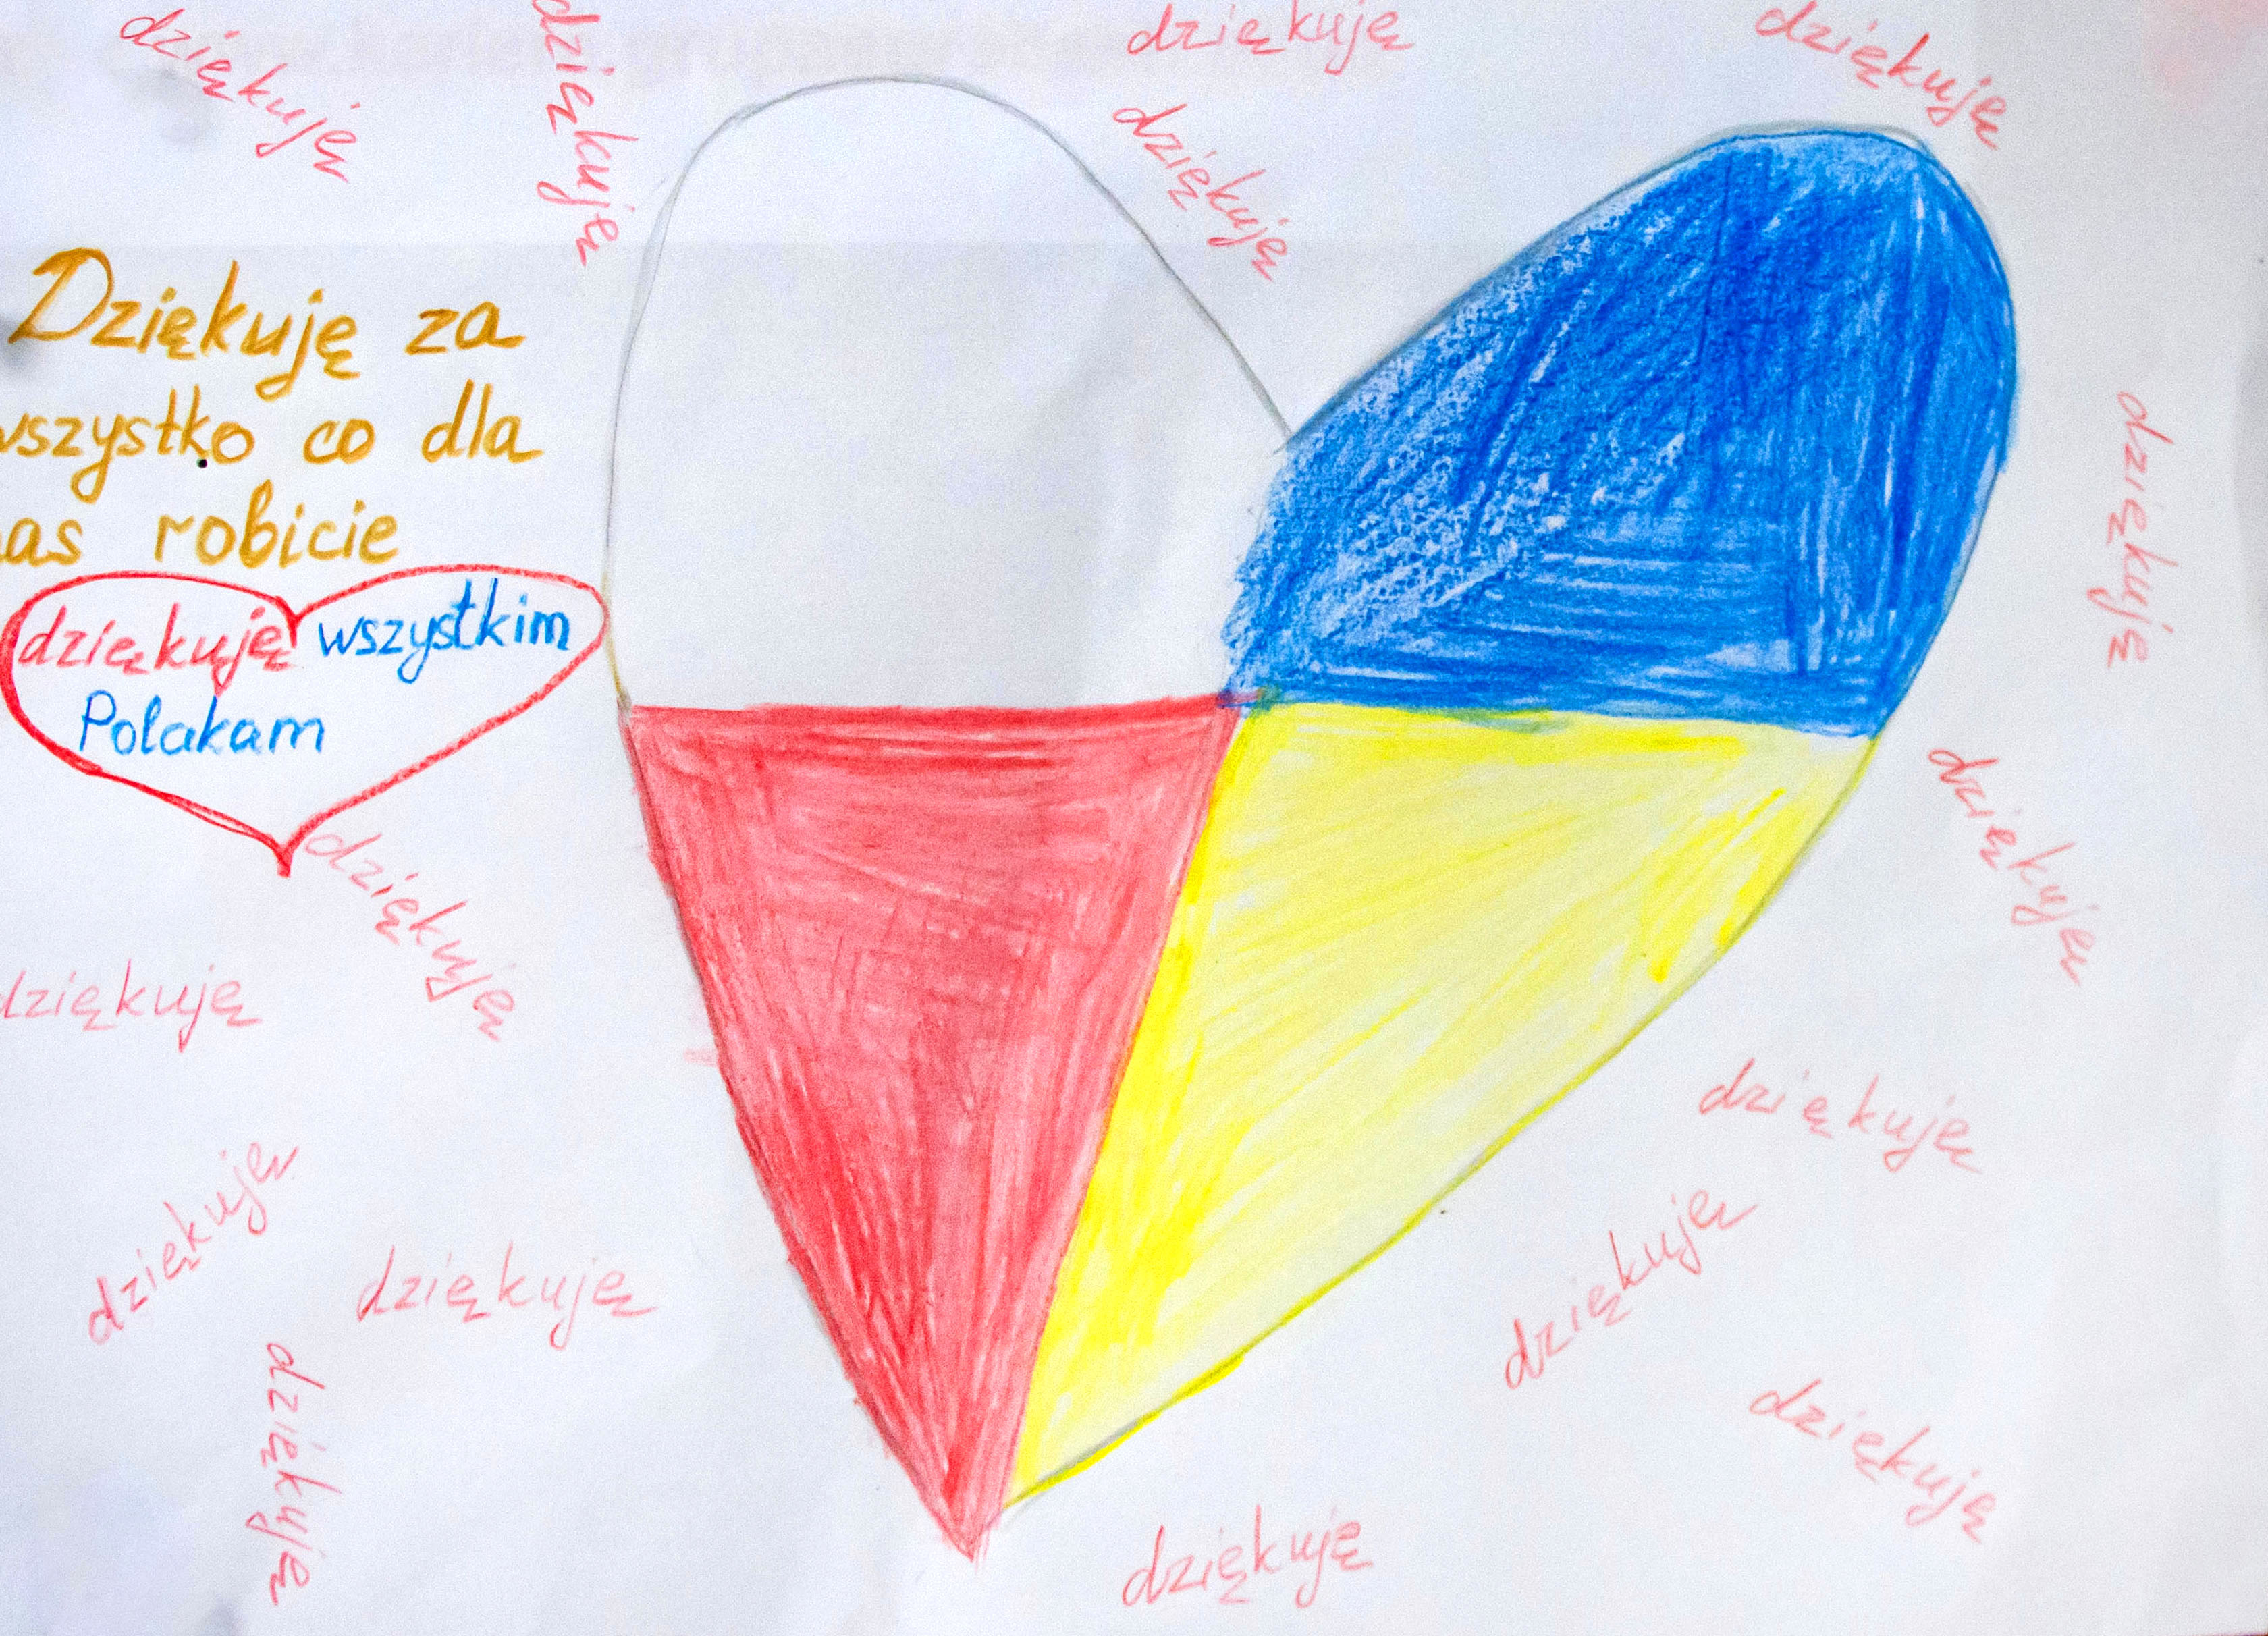 dziękuję
dziękuję
dziękuję
dziękuję
dziękuję
Dziękuję za
wszystko co dla
nas robicie
dziękuję wszystkim
Polakam
dziękuję
dziękuję
dziękuję
dziękuję
dziękuję
dziękuję
dziękuję
dziękuję
dziękuję
dziękuję
dziękuję
dziękuję